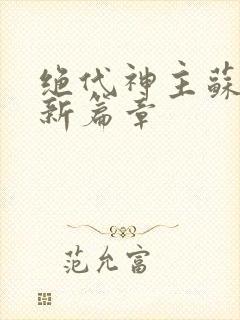 绝代神主蘇
新篇章
范允富